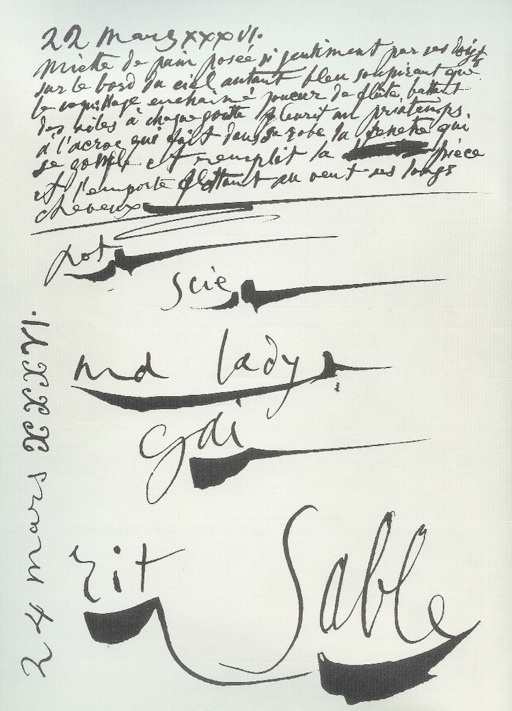 22 mars XXXVI.
miette de pain posée si gentiment par ses doigts
sur le bord du ciel autant bleu soupirant que
le coquillage enchainé joueur de flûte battant
des ailes à chaque goutte fleurit au printemps
à l'accroc qui fait dans sa robe la fenetre qui
se gonfle et remplit la pièce
et l'emporte flottant au vent ses longs
cheveux
pot
scie
ma lady
gai
rit Sable
24 mars XXXVI.